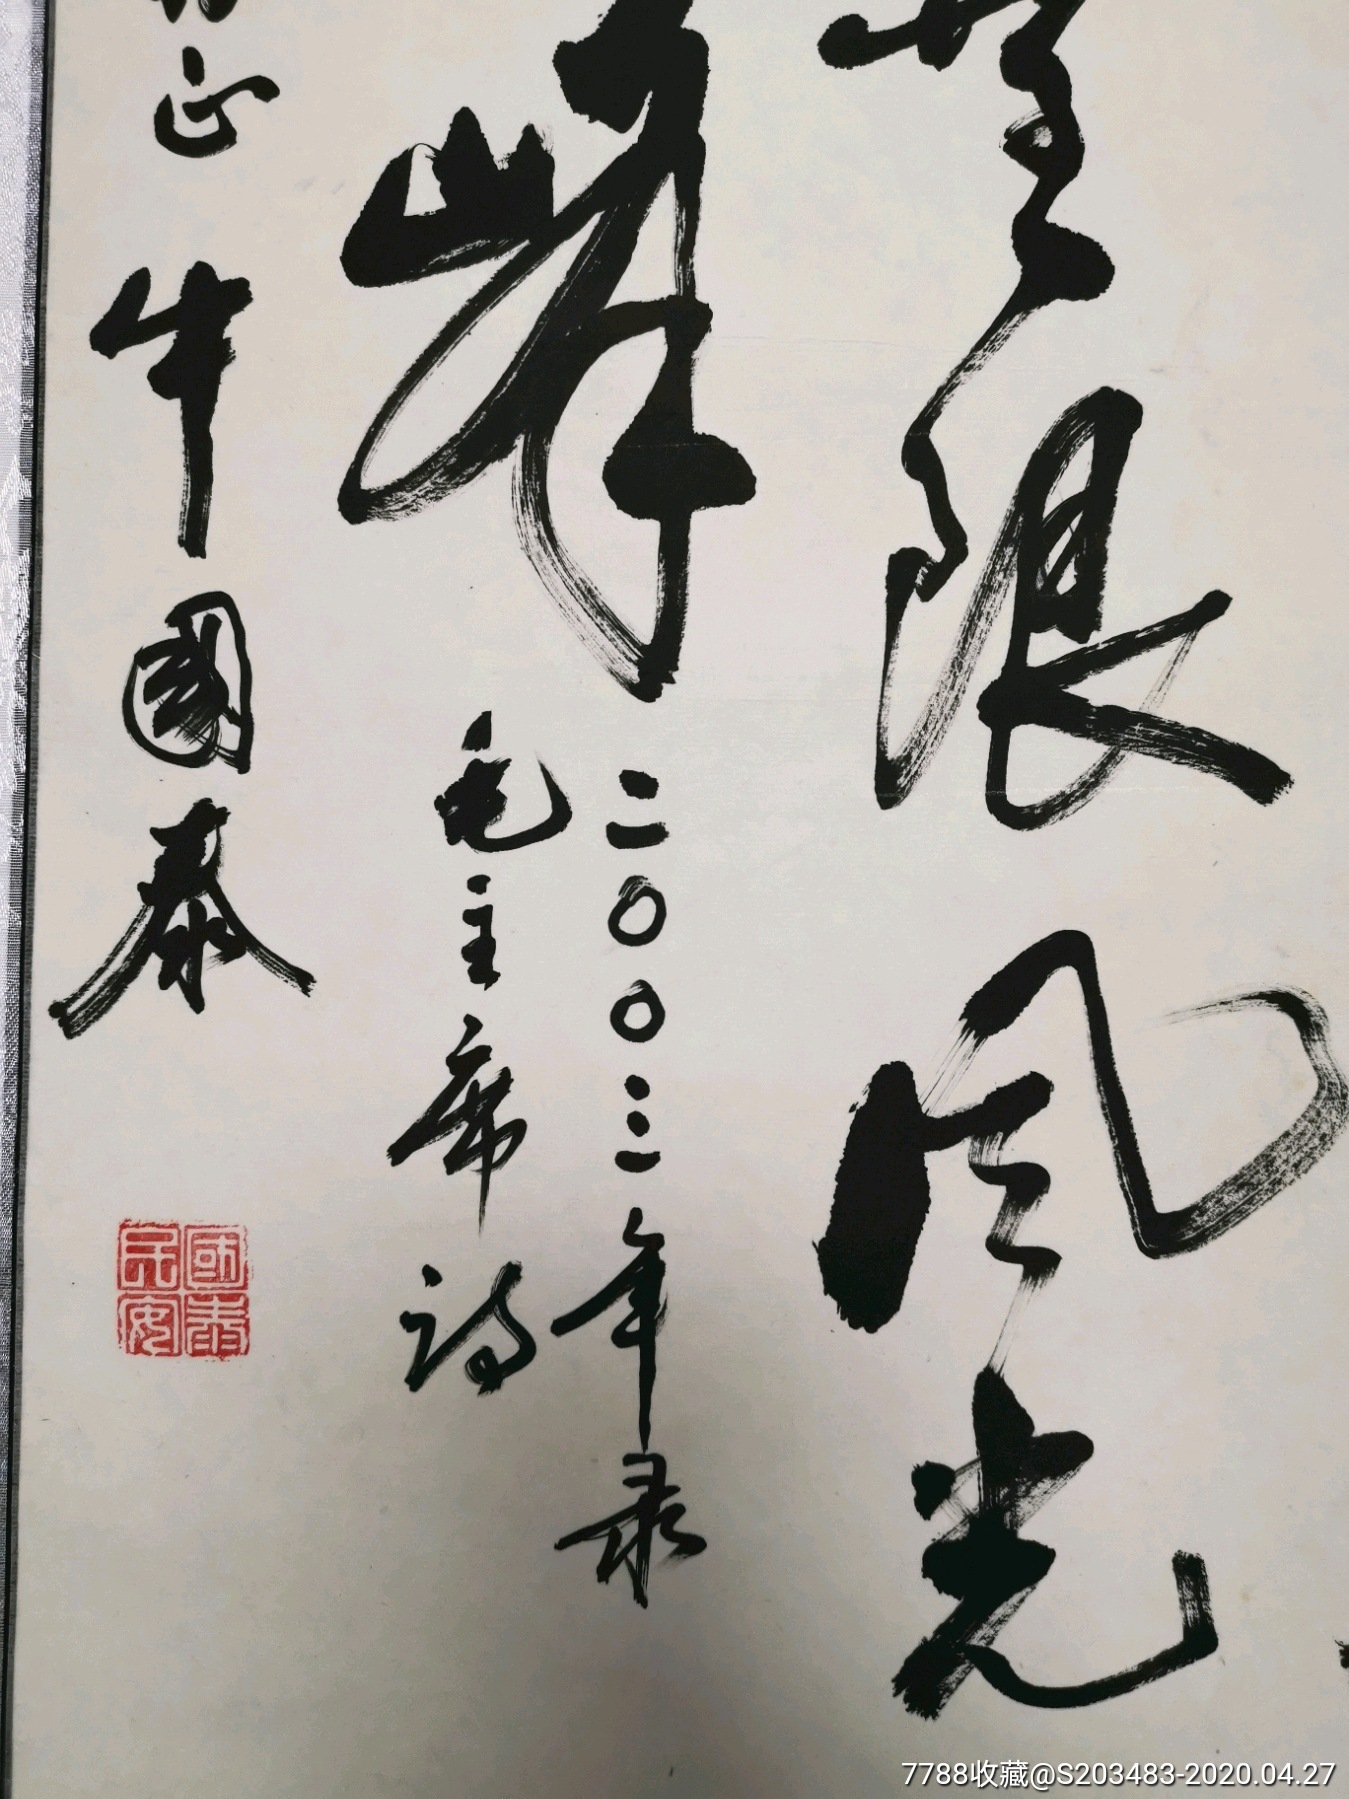 无限风光
峰
二〇〇三年录
毛主席诗
正
牛國泰
國泰
民安
7788收藏@S203483-2020.04.27